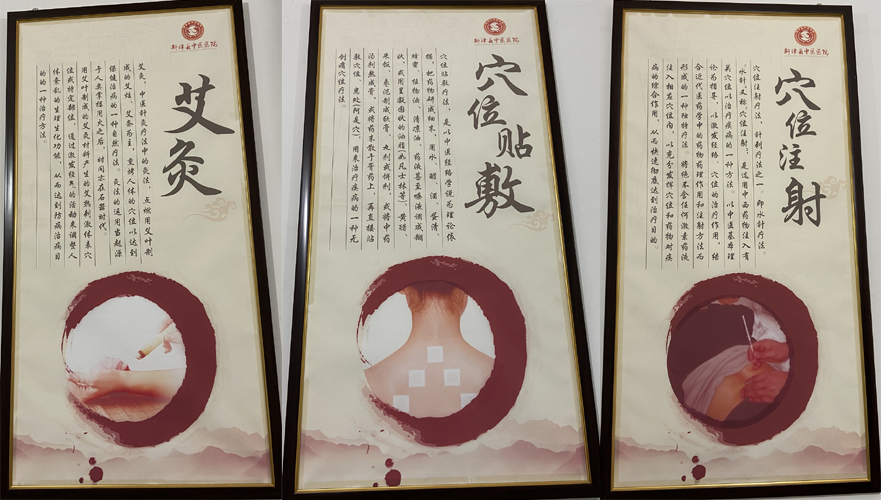 艾灸
艾灸,中医针灸疗法中的灸法。点燃用艾叶制
成的艾炷、艾条为主,熏烤人体的穴位以达到
保健治病的一种自然疗法。灸法的运用当起源
于人类掌握用火之后,时间亦在石器时代。
用艾叶制成的艾灸材料产生的艾热刺激体表穴
位或特定部位,通过激发经气的活动来调整人
体紊乱的生理生化功能,从而达到防病治病目
的的一种治疗方法。
新津县中医医院
穴位贴敷
穴位贴敷疗法,是以中医经络学说为理论依
据,把药物研成细末,用水、醋、酒、蛋清、
蜂蜜、植物油、清凉油、药液甚至唾液调成糊
状,或用呈凝固状的油脂(如凡士林等)、黄醋、
米饭、枣泥制成软膏、丸剂或饼剂,或将中药
汤剂熬成膏,或将药末散于膏药上,再直接贴
敷穴位、患处(阿是穴),用来治疗疾病的一种无
创痛穴位疗法。
新津县中医医院
穴位注射
穴位注射疗法,针刺疗法之一。即水针疗法。
"水针"又称"穴位注射",是选用中西药物注入有
关穴位以治疗疾病的一种方法。以中医基本理
论为指导,以激发经络、穴位的治疗作用,结
合近代医药学中的药物药理作用和注射方法而
形成的一种独特疗法。将绝不含任何激素药液
注入相应穴位内,以充分发挥穴位和药物对疾
病的综合作用,从而快速彻底达到治疗目的。
新津县中医医院